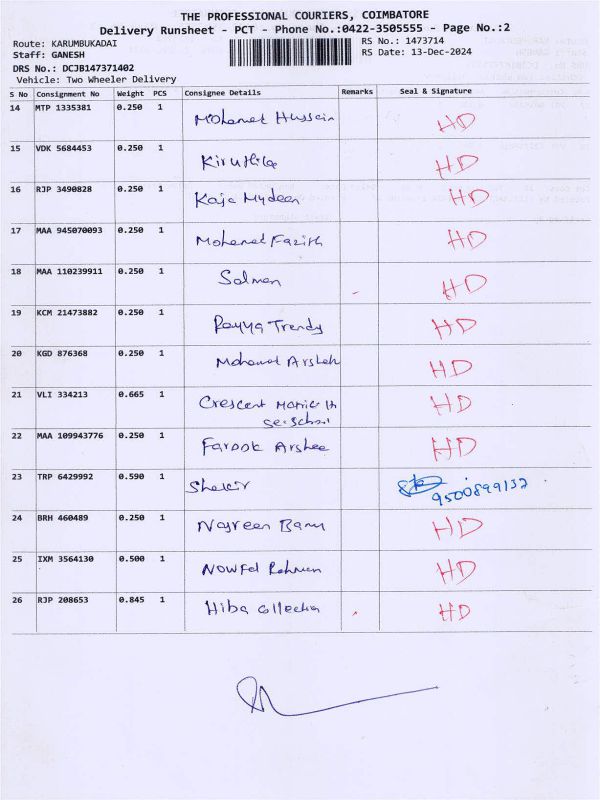 THE PROFESSIONAL COURIERS, COIMBATORE
Delivery Runsheet - PCT - Phone No.:0422-3505555 - Page No.:2
Route: KARUMBUKADAI RS No.: 1473714
Staff: GANESH RS Date: 13-Dec-2024
DRS No.: DCJB147371402
Vehicle: Two Wheeler Delivery
S No Consignment No Weight PCS Consignee Details Remarks Seal & Signature
14 MTP 1335381 0.250 1 Mohamed Hussain HD
15 VDK 5684453 0.250 1 Kiruthika HD
16 RJP 3490828 0.250 1 Kaja Mydeen HD
17 MAA 945070093 0.250 1 Mohamed Fazith HD
18 MAA 110239911 0.250 1 Salman HD
19 KCM 21473882 0.250 1 Rayya Trendy HD
20 KGD 876368 0.250 1 Mohamed Arshah HD
21 VLI 334213 0.665 1 Crescent Matric HD
22 MAA 109943776 0.250 1 Farook Arshee HD
23 TRP 6429992 0.590 1 Shakir 9500899132
24 BRH 460489 0.250 1 Nasreen Banu HD
25 IXM 3564130 0.500 1 Nowfel Rahman HD
26 RJP 208653 0.845 1 Hiba HD